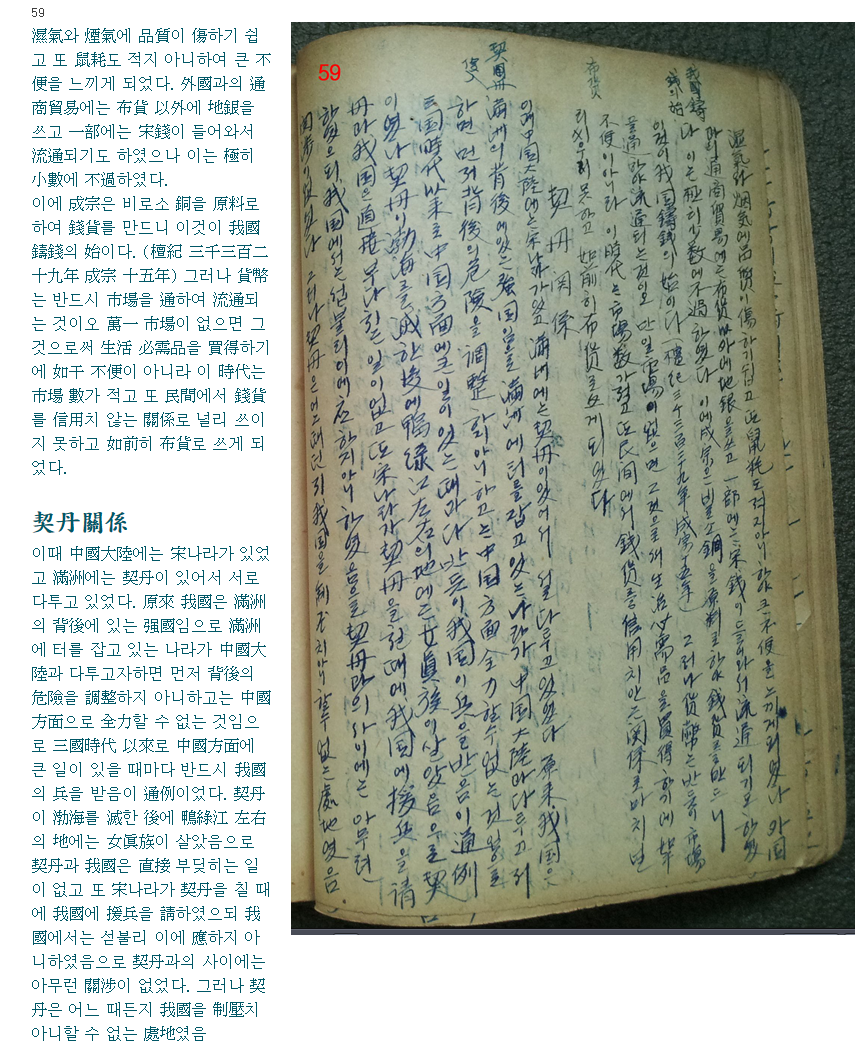 59
濕氣와 煙氣에 品質이 傷하기 쉽
고 또 鼠耗도 적지 아니하여 큰 不
便을 느끼게 되었다. 外國과의 通
商貿易에는 布貨 以外에 地銀을
쓰고 一部에는 宋錢이 들어와서
流通되기도 하였으나 이는 極히
小數에 不過하였다.
이에 成宗은 비로소 銅을 原料로
하여 錢貨를 만드니 이것이 我國
鑄錢의 始이다. (檀紀 三千三百二
十九年 成宗 十五年) 그러나 貨幣
는 반드시 市場을 通하여 流通되
는 것이오 萬一 市場이 없으면 그
것으로써 生活 必需品을 買得하기
에 如干 不便이 아니라 이 時代는
市場 數가 적고 또 民間에서 錢貨
를 信用치 않는 關係로 널리 쓰이
지 못하고 如前히 布貨로 쓰게 되
었다.
契丹關係
이때 中國大陸에는 宋나라가 있었
고 滿洲에는 契丹이 있어서 서로
다투고 있었다. 原來 我國은 滿洲
의 背後에 있는 强國임으로 滿洲
에 터를 잡고 있는 나라가 中國大
陸과 다투고자하면 먼저 背後의
危險을 調整하지 아니하고는 中國
方面으로 全力할 수 없는 것임으
로 三國時代 以來로 中國方面에
큰 일이 있을 때마다 반드시 我國
의 兵을 받음이 通例이었다. 契丹
이 渤海를 滅한 後에 鴨綠江 左右
의 地에는 女眞族이 살았음으로
契丹과 我國은 直接 부딪히는 일
이 없고 또 宋나라가 契丹을 칠 때
에 我國에 援兵을 請하였으되 我
國에서는 섣불리 이에 應하지 아
니하였음으로 契丹과의 사이에는
아무런 關涉이 없었다. 그러나 契
丹은 어느 때든지 我國을 制壓치
아니할 수 없는 處地였음
59
濕氣와 烟氣에 品質이 傷하기 쉽고 또 鼠耗도 적지 아니하야 큰 不便을 느끼게 되였다 外国
과의 通商貿易에는 布貨以外에 地銀을 쓰고 一部에는 宋錢이 들어와서 流通되기도 하였
나 이는 極히 少数에 不過하였다 이에 成宗은 비로소 銅을 原料로 하야 錢貨를 만드니
이것이 我国鑄錢의 始이다 (檀紀三千三百二十九年 成宗十五年) 그러나 貨幣는 반듯이 市場
을 通하야 流通되는 것이오 만일 市場이 없으면 그것으로써 生活必需品을 買得하기에 如干
不便이 아니라 이 時代는 市場数가 적고 또 民間에서 錢貨를 信用치 안는 関係로
리 쓰이지 못하고 如前히 布貨로 쓰게 되였다
契丹関係
이때 中国大陸에는 宋나라가 있고 滿洲에는 契丹이 있어서 서로 다투고 있었다 原来 我国은
滿洲의 背後에 있는 强国임으로 滿洲에 터를 잡고 있는 나라가 中国大陸과 다투고저
하면 먼저 背後의 危險을 調整하지 아니하고는 中国方面에 全力할 수 없는 것임으로
三国時代 以来로 中国方面에 큰 일이 있는 때마다 반듯이 我国의 兵을 받음이 通例
이였다 契丹이 渤海를 滅한 後에 鴨綠江 左右의 地에는 女眞族이 살았음으로 契
丹과 我国은 直接 부다치는 일이 없고 또 宋나라가 契丹을 칠 때에 我国에 援兵을 請
하였으되 我国에서는 섣불리 이에 応하지 아니하였음으로 契丹과의 사이에는 아무런
関涉이 없었다 그러나 契丹은 어느 때던지 我国을 制압치 아니할 수 없는 處地였음
我國鑄
錢의 始
布貨
契丹